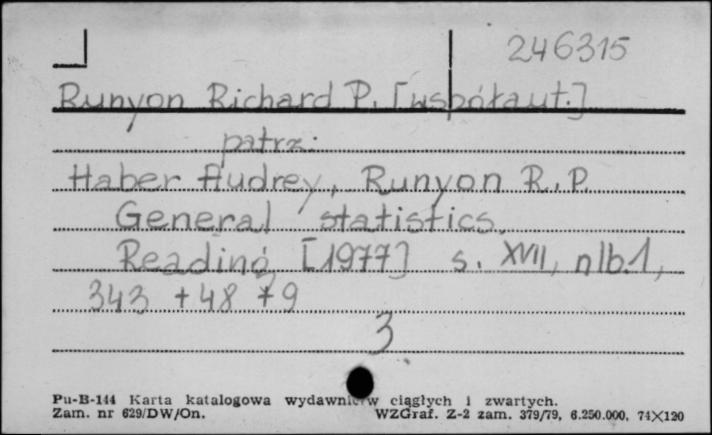 246315
Runyon Richard P. [współaut.]
patrz:
Haber Audrey, Runyon R.P.
General statistics.
Reading, [1977] s. XVII, nlb.1,
343 + 48 + 9
3
Pu-B-144 Karta katalogowa wydawnictw ciągłych i zwartych.
Zam. nr 629/DW/On. WZGraf. Z-2 zam. 379/79, 6.250.000, 74×120